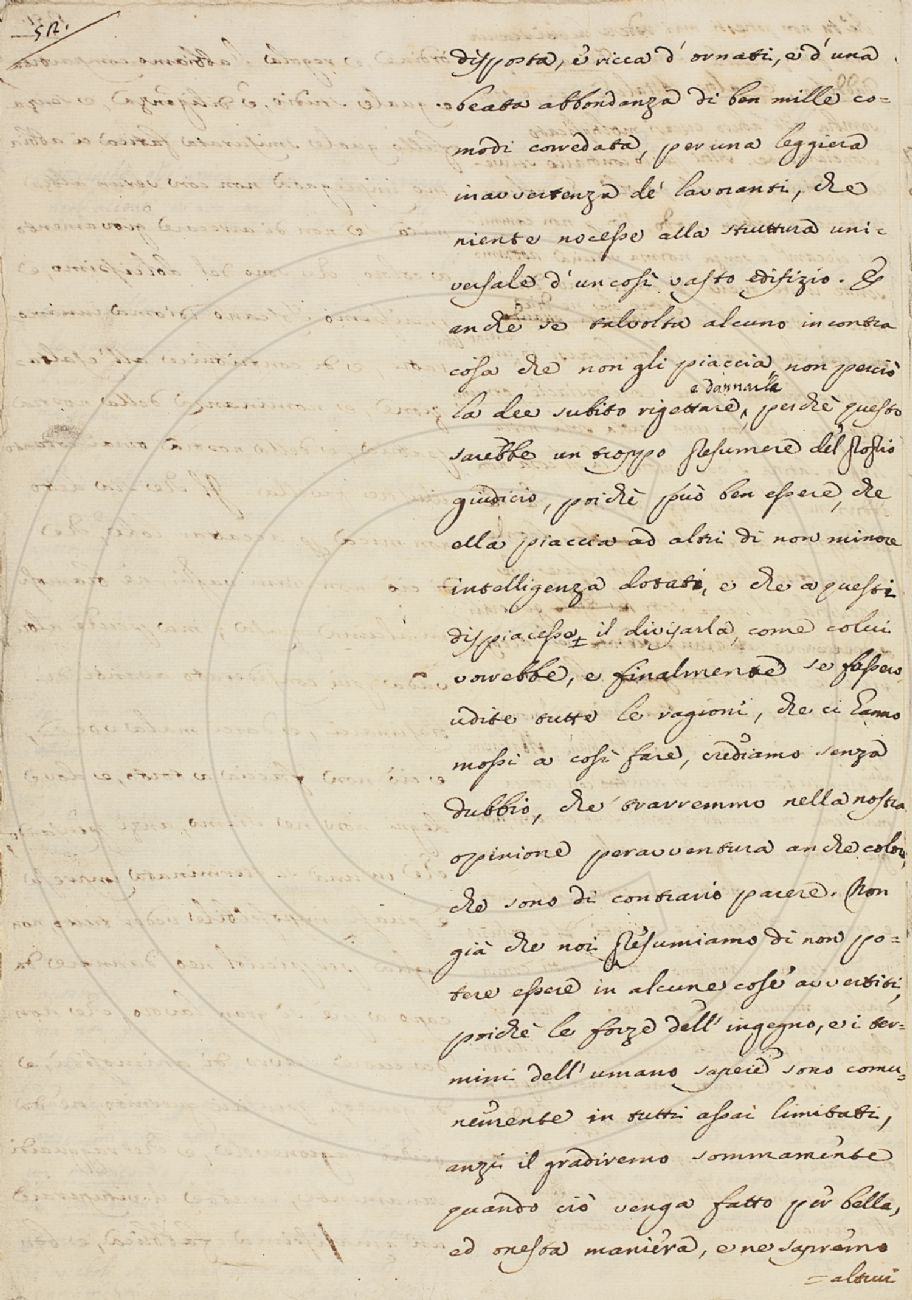 512.
disposta, e ricca d' ornati, e d' una
beata abbondanza di ben mille co=
modi corredata, per una leggiera
inavvertenza de' lavoranti, che
niente nocesse alla struttura uni=
versale d' un così vasto edifizio. E
anche se talvolta alcuno incontra
cosa che non gli piaccia, non perciò
e dannarla
la dee subito rigettare, perchè questo
sarebbe un troppo presumere del proprio
giudicio, poichè può ben essere, che
ella piaccia ad altri di non minore
intelligenza dotati, e che a questi
dispiacesse il divisarla, come colui
vorrebbe, e finalmente se fossero
udite tutte le ragioni, che ci hanno
mossi a così fare, crediamo senza
dubbio, che trarremmo nella nostra
opinione peravventura anche coloro,
che sono di contrario parere. Non
già che noi presumiamo di non po=
tere essere in alcune cose avvertiti,
poichè le forze dell' ingegno, e i ter=
mini dell' umano sapere sono comu=
nemente in tutti assai limitati,
anzi il gradiremo sommamente
quando ciò venga fatto per bella,
ed onesta maniera, e ne sapremo
= altrui